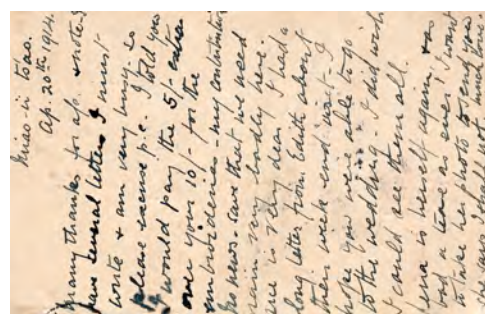 Miao-li Ts'ao.
Ap. 20th 1914.
Many thanks for a/c. & note. I
have several letters I must
write & am very busy, so
please excuse p.c. I told you
I would pay the 5/- extra
over your 10/- for the
embroideries - my contribution
No news - save that we need
rain very badly here.
are is very dear. I had a
long letter from Edith about
their week end visit - I
hope you were able to go
to the wedding. I did wish
I could see them all.
Lena is herself again, & as
bad a tease as ever! I want
to take her photo to send you
she says I shall not. much love.